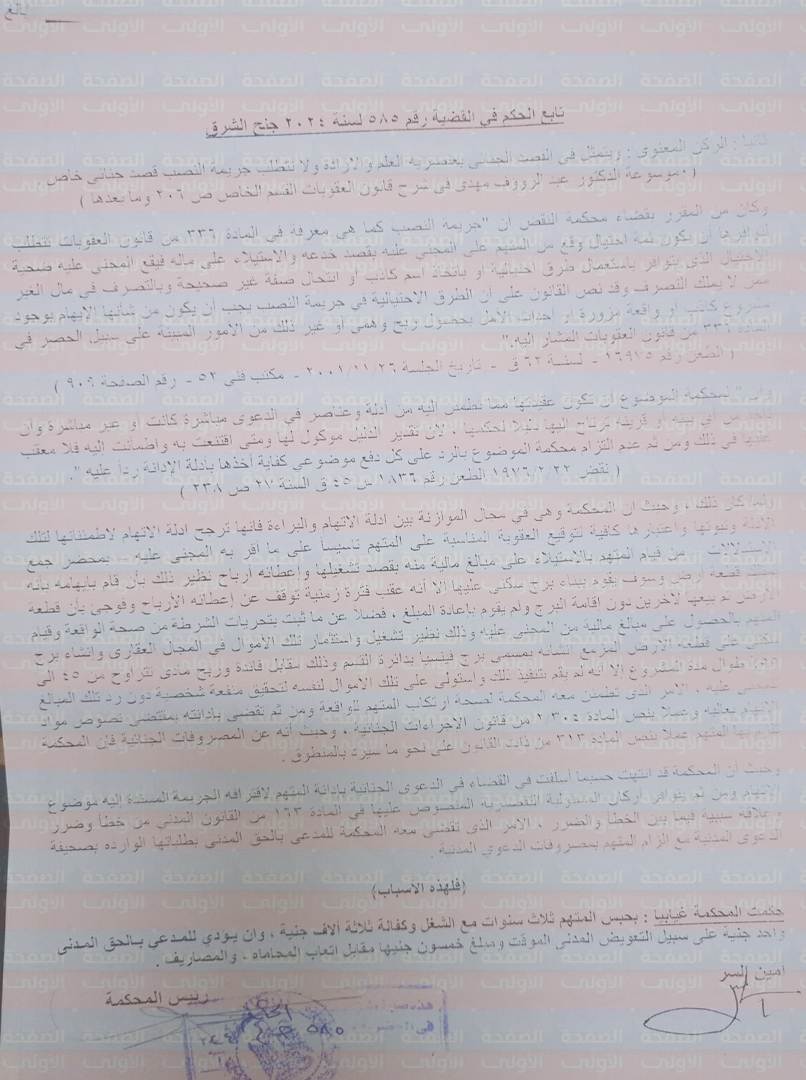 تابع الحكم في القضية رقم ٥٨٥ لسنة ٢٠٢٤ جنح الشرق
ثانيا : الركن المعنوى : ويتمثل فى القصد الجنائى بعنصريه العلم والارادة ولا تتطلب جريمه النصب قصد جنائى خاص .
( موسوعة الدكتور عبد الرووف مهدى فى شرح قانون العقوبات القسم الخاص ص ٢٠٦ وما بعدها )
وكان من المقرر بقضاء محكمة النقض ان "جريمة النصب كما هى معرفة في المادة ٣٣٦ من قانون العقوبات تتطلب
لتوافرها أن يكون ثمة احتيال وقع من المتهم على المجني عليه بقصد خدعه والاستيلاء على ماله فيقع المجنى عليه ضحية
الاحتيال الذي يتوافر باستعمال طرق احتيالية او باتخاذ اسم كاذب او انتحال صفة غير صحيحة وبالتصرف فى مال الغير
ممن لا يملك التصرف وقد نص القانون على أن الطرق الاحتيالية في جريمة النصب يجب أن يكون من شأنها الإيهام بوجود
مشروع كاذب أو واقعة مزورة أو احداث الأمل بحصول ربح وهمى أو غير ذلك من الأمور المبينة على سبيل الحصر في
المادة ٣٣٦ من قانون العقوبات المشار اليه."
( الطعن رقم ١٦٩٧٥ - لسنة ٦٢ ق - تاريخ الجلسة ٢٠٠١/١١/٢٦ - مكتب فني ٥٢ - رقم الصفحة ٩٠٦ )
وان "لمحكمة الموضوع أن تكون عقيدتها مما تطمئن إليه من أدلة وعناصر في الدعوى مباشرة كانت أو غير مباشرة وأن
تأخذ من أي بينة أو قرينة ترتاح إليها دليلا لحكمها ، لان تقدير الدليل موكول لها ومتى اقتنعت به واطمأنت إليه فلا معقب
عليها في ذلك ومن ثم عدم التزام محكمة الموضوع بالرد على كل دفع موضوعي كفاية أخذها بأدلة الإدانة رداً عليه ".
( نقض ١٩٧٦/٢/٢٢ الطعن رقم ١٨٣٦ س ٤٥ ق السنة ٢٧ ص ٢٣٨ )
ولما كان ذلك ، وحيث ان المحكمة وهى في مجال الموازنة بين ادلة الاتهام والبراءة فانها ترجح ادلة الاتهام لاطمئنانها لتلك
الادلة وثبوتها واعتبارها كافية لتوقيع العقوبة المناسبة على المتهم تأسيسا على ما اقر به المجنى عليه بمحضر جمع
الاستدلالات من قيام المتهم بالاستيلاء على مبالغ مالية منه بقصد تشغيلها وإعطائه ارباح نظير ذلك بأن قام بايهامه بأنه
قطعة ارض وسوف يقوم ببناء برج سكنى عليها الا أنه عقب فترة زمنية توقف عن إعطائه الأرباح وفوجئ بأن قطعة
الأرض تم بيعها لآخرين دون إقامة البرج ولم يقوم بإعادة المبلغ ، فضلا عن ما ثبت بتحريات الشرطة من صحة الواقعة وقيام
المتهم بالحصول على مبالغ مالية من المجنى عليه وذلك نظير تشغيل واستثمار تلك الأموال فى المجال العقارى وانشاء برج
سكنى على قطعه الارض المزمع انشائه بمسمى برج فينسيا بدائرة القسم وذلك مقابل فائدة وربح مادى تتراوح من ٤٥ الى
طوال مدة المشروع الا انه لم يقم بتنفيذ ذلك واستولى على تلك الاموال لنفسه لتحقيق منفعة شخصية دون رد تلك المبالغ
للمجنى عليه ، الامر الذى تطمئن معه المحكمة لصحة ارتكاب المتهم للواقعة ومن ثم تقضى بادانته بمقتضى نصوص مواد
الاتهام بعاليه وعملا بنص المادة ٢/٣٠٤ من قانون الاجراءات الجنائية ، وحيث أنه عن المصروفات الجنائية فإن المحكمة
تلزم بها المتهم عملا بنص المادة ٣١٣ من ذات القانون على نحو ما سيرد بالمنطوق .
وحيث أن المحكمة قد انتهت حسبما أسلفت في القضاء في الدعوى الجنائية بإدانة المتهم لاقترافه الجريمة المسندة إليه موضوع
الاتهام ومن ثم يتوافر أركان المسئولية التقصيرية المنصوص عليها فى المادة ١٦٣ من القانون المدني من خطأ وضرر
وعلاقة سببية فيما بين الخطأ والضرر ، الامر الذى تقضى معه المحكمة للمدعى بالحق المدنى بطلباتها الوارده بصحيفة
الدعوى المدنية مع الزام المتهم بمصروفات الدعوى المدنية .
(فلهذه الاسباب)
حكمت المحكمة غيابيا : بحبس المتهم ثلاث سنوات مع الشغل وكفالة ثلاثة ألاف جنية ، وان يؤدي للمدعى بالحق المدنى
واحد جنية على سبيل التعويض المدنى المؤقت ومبلغ خمسون جنيها مقابل اتعاب المحاماه ، والمصاريف .
امين السر
رئيس المحكمة
الصفحة الأولى